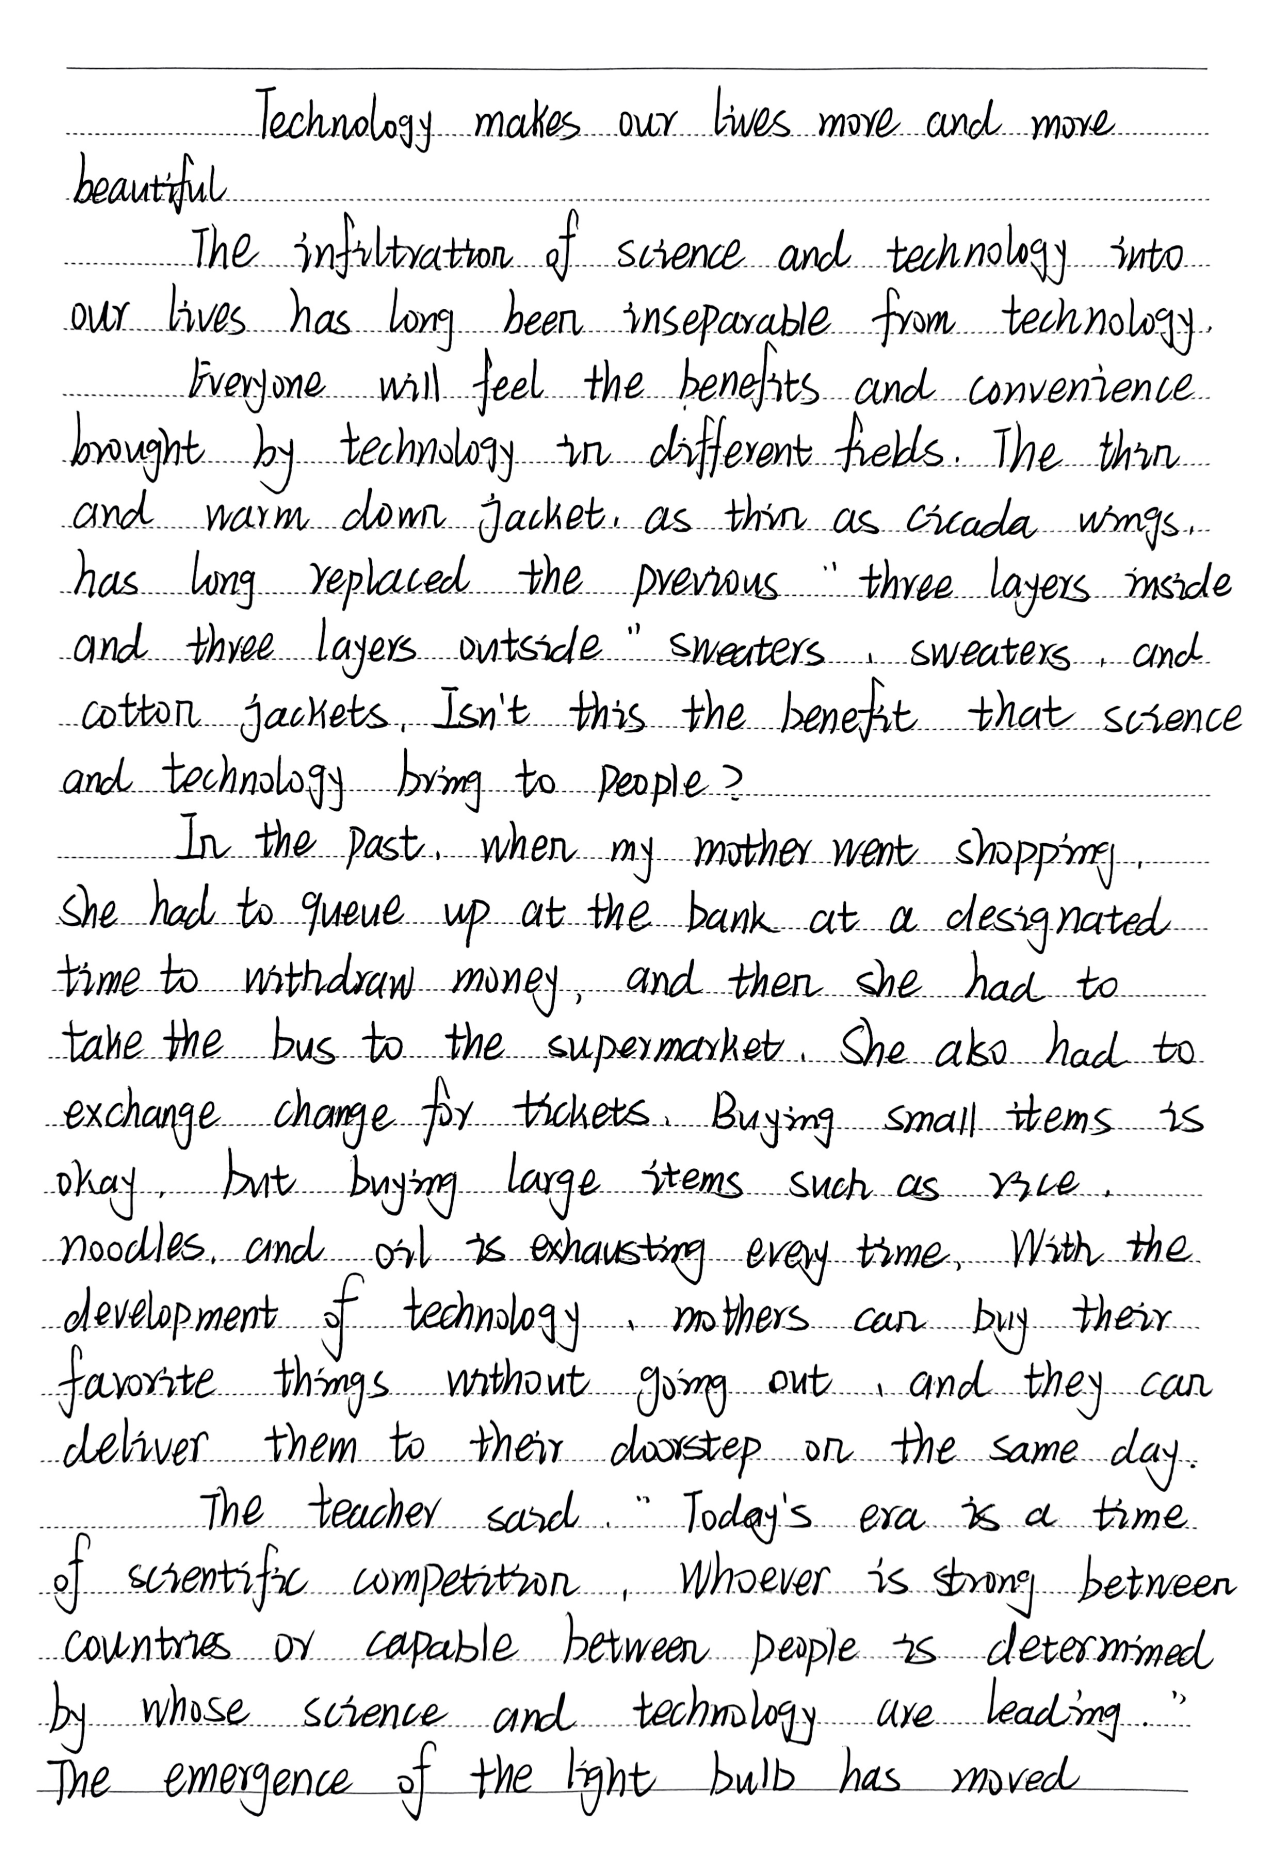 Technology makes our lives more and more
beautiful
The infiltration of science and technology into
our lives has long been inseparable from technology.
Everyone will feel the benefits and convenience
brought by technology in different fields. The thin
and warm down jacket, as thin as cicada wings,
has long replaced the previous "three layers inside
and three layers outside" sweaters, sweaters, and
cotton jackets. Isn't this the benefit that science
and technology bring to people?
In the past, when my mother went shopping,
she had to queue up at the bank at a designated
time to withdraw money, and then she had to
take the bus to the supermarket. She also had to
exchange change for tickets. Buying small items is
okay, but buying large items such as rice,
noodles, and oil is exhausting every time. With the
development of technology, mothers can buy their
favorite things without going out, and they can
deliver them to their doorstep on the same day.
The teacher said, "Today's era is a time
of scientific competition, Whoever is strong between
countries or capable between people is determined
by whose science and technology are leading."
The emergence of the light bulb has moved